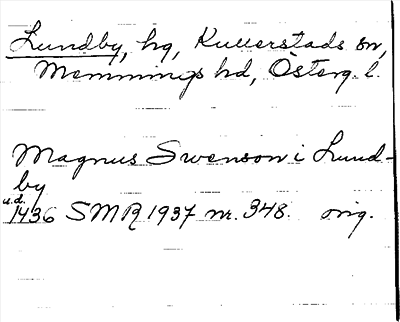 Lundby, hg, Kullerstads sn,
Memmings hd, Österg. l.
Magnus Swenson i Lund-
by
u.d.
1436 SMR 1937 nr. 348. orig.